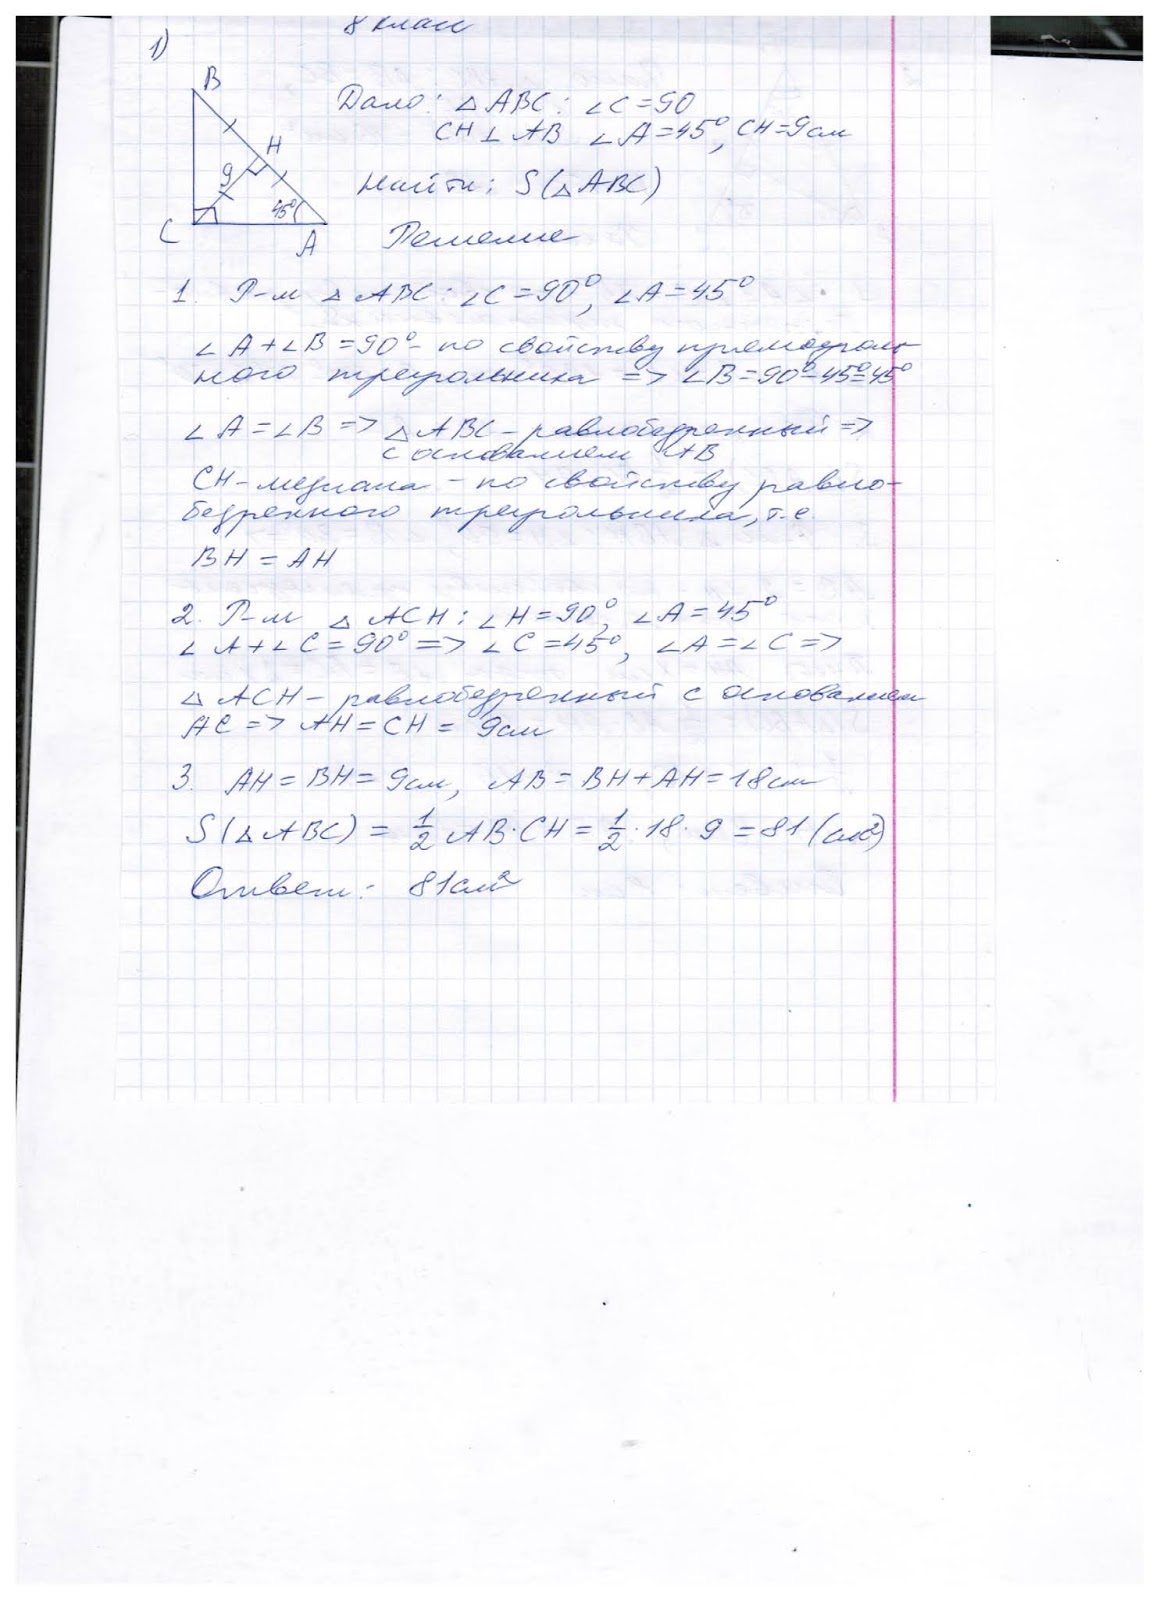 8 класс
1)
B
Дано: △ ABC: ∠C = 90
CH ⊥ AB ∠A = 45°, CH = 9см
H
9
Найти: S(△ ABC)
45°
C
A
Решение
1. Р-м △ ABC: ∠C = 90°, ∠A = 45°
∠A + ∠B = 90° - по свойству прямоуголь-
ного треугольника => ∠B = 90° - 45° = 45°
∠A = ∠B => △ ABC - равнобедренный =>
с основанием AB
CH - медиана - по свойству равно-
бедренного треугольника, т.е.
BH = AH
2. Р-м △ ACH: ∠H = 90°, ∠A = 45°
∠A + ∠C = 90° => ∠C = 45°, ∠A = ∠C =>
△ ACH - равнобедренный с основанием
AC => AH = CH = 9см
3. AH = BH = 9см, AB = BH + AH = 18см
S(△ ABC) = 1/2 AB · CH = 1/2 · 18 · 9 = 81 (см²)
Ответ: 81см²